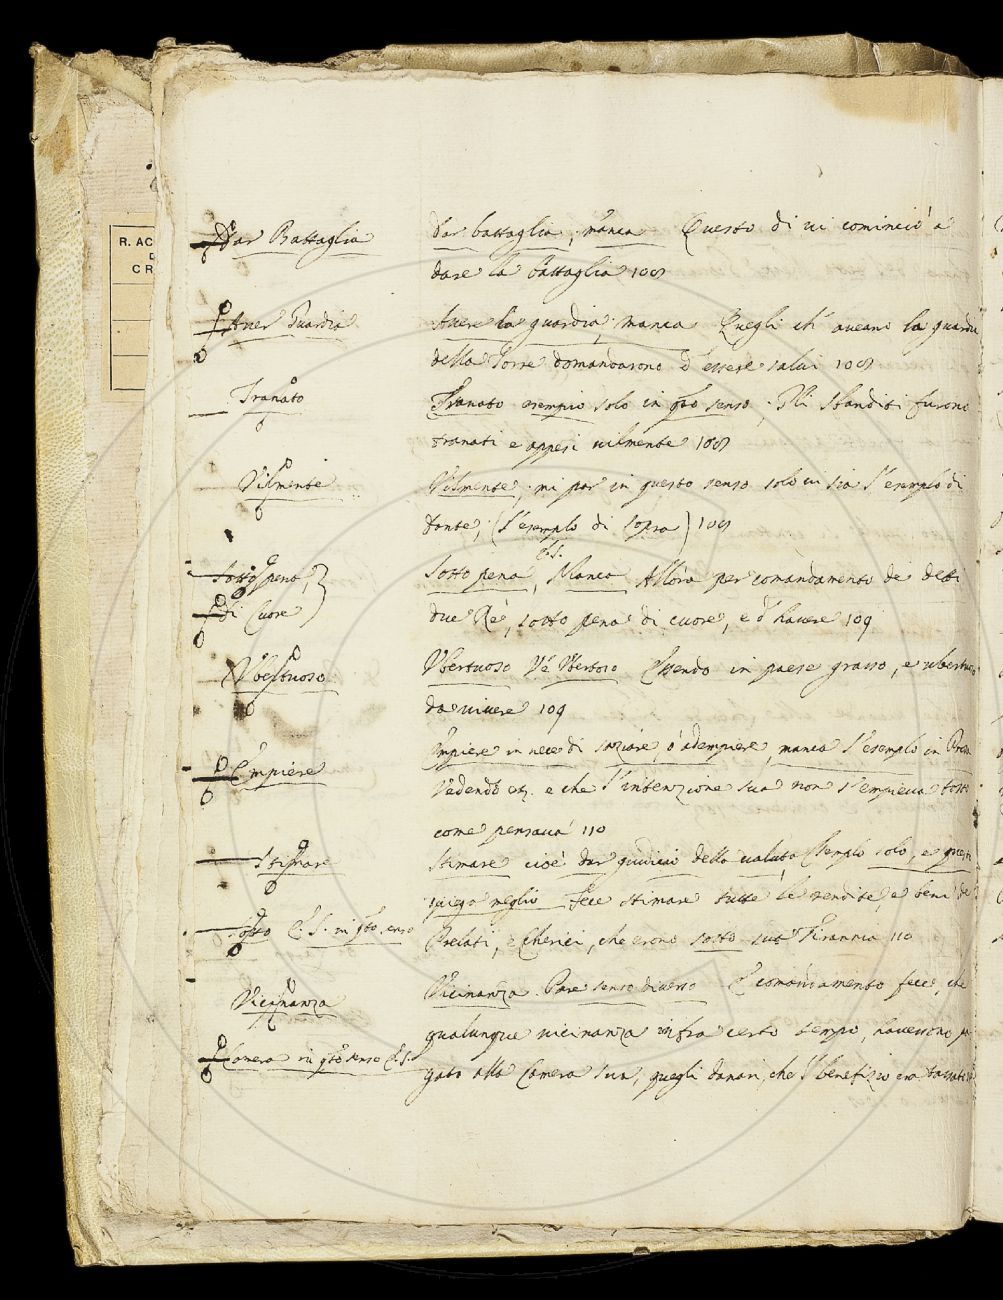 R. AC
D
CR
Dar Battaglia
Dar battaglia, manca Questo dì vi cominciò a
dare la battaglia 108
Aver Guardia
Avere la guardia, manca Quegli ch' aveano la guardia
della Torre domandarono d'essere salvi 108
Tranato
Tranato esempio solo in qto senso. Gli sbanditi furono
tranati e appesi vilmente 108
Vilmente
Vilmente, mi par in questo senso solo vi sia l'esemplo di
Dante, (l'esemplo di sopra) 108
Sotto pena,
di Cuore
Sotto pena, E.S. Manca Allora per comandamento de detti
due Rè, sotto pena di cuore, e d'havere 109
Ubertuoso
Ubertuoso Vè Ubertoso Essendo in paese grasso, e ubertuoso
da vivere 109
Empiere
Empiere in vece di saziare, o adempiere, manca l'esemplo in Prosa
Vedendo e che l'intenzione sua non s'empieva tosto
come pensava 110
Stimare
Stimare cioè dar giudicio della valuta Esemplo solo, e questi
spiega meglio Fece stimare tutte le rendite, e beni de
Sotto E.S. in qto senso
Prelati, e Cherici, che erono sotto sua Tirannia 110
Vicinanza
Vicinanza. Pare senso diverso E comandamento fece, che
qualunque vicinanza infra certo tempo, havessono pa
Camera in qto senso E.S.
gato alla Camera sua, quegli danari, che 'l benefizio era tassato